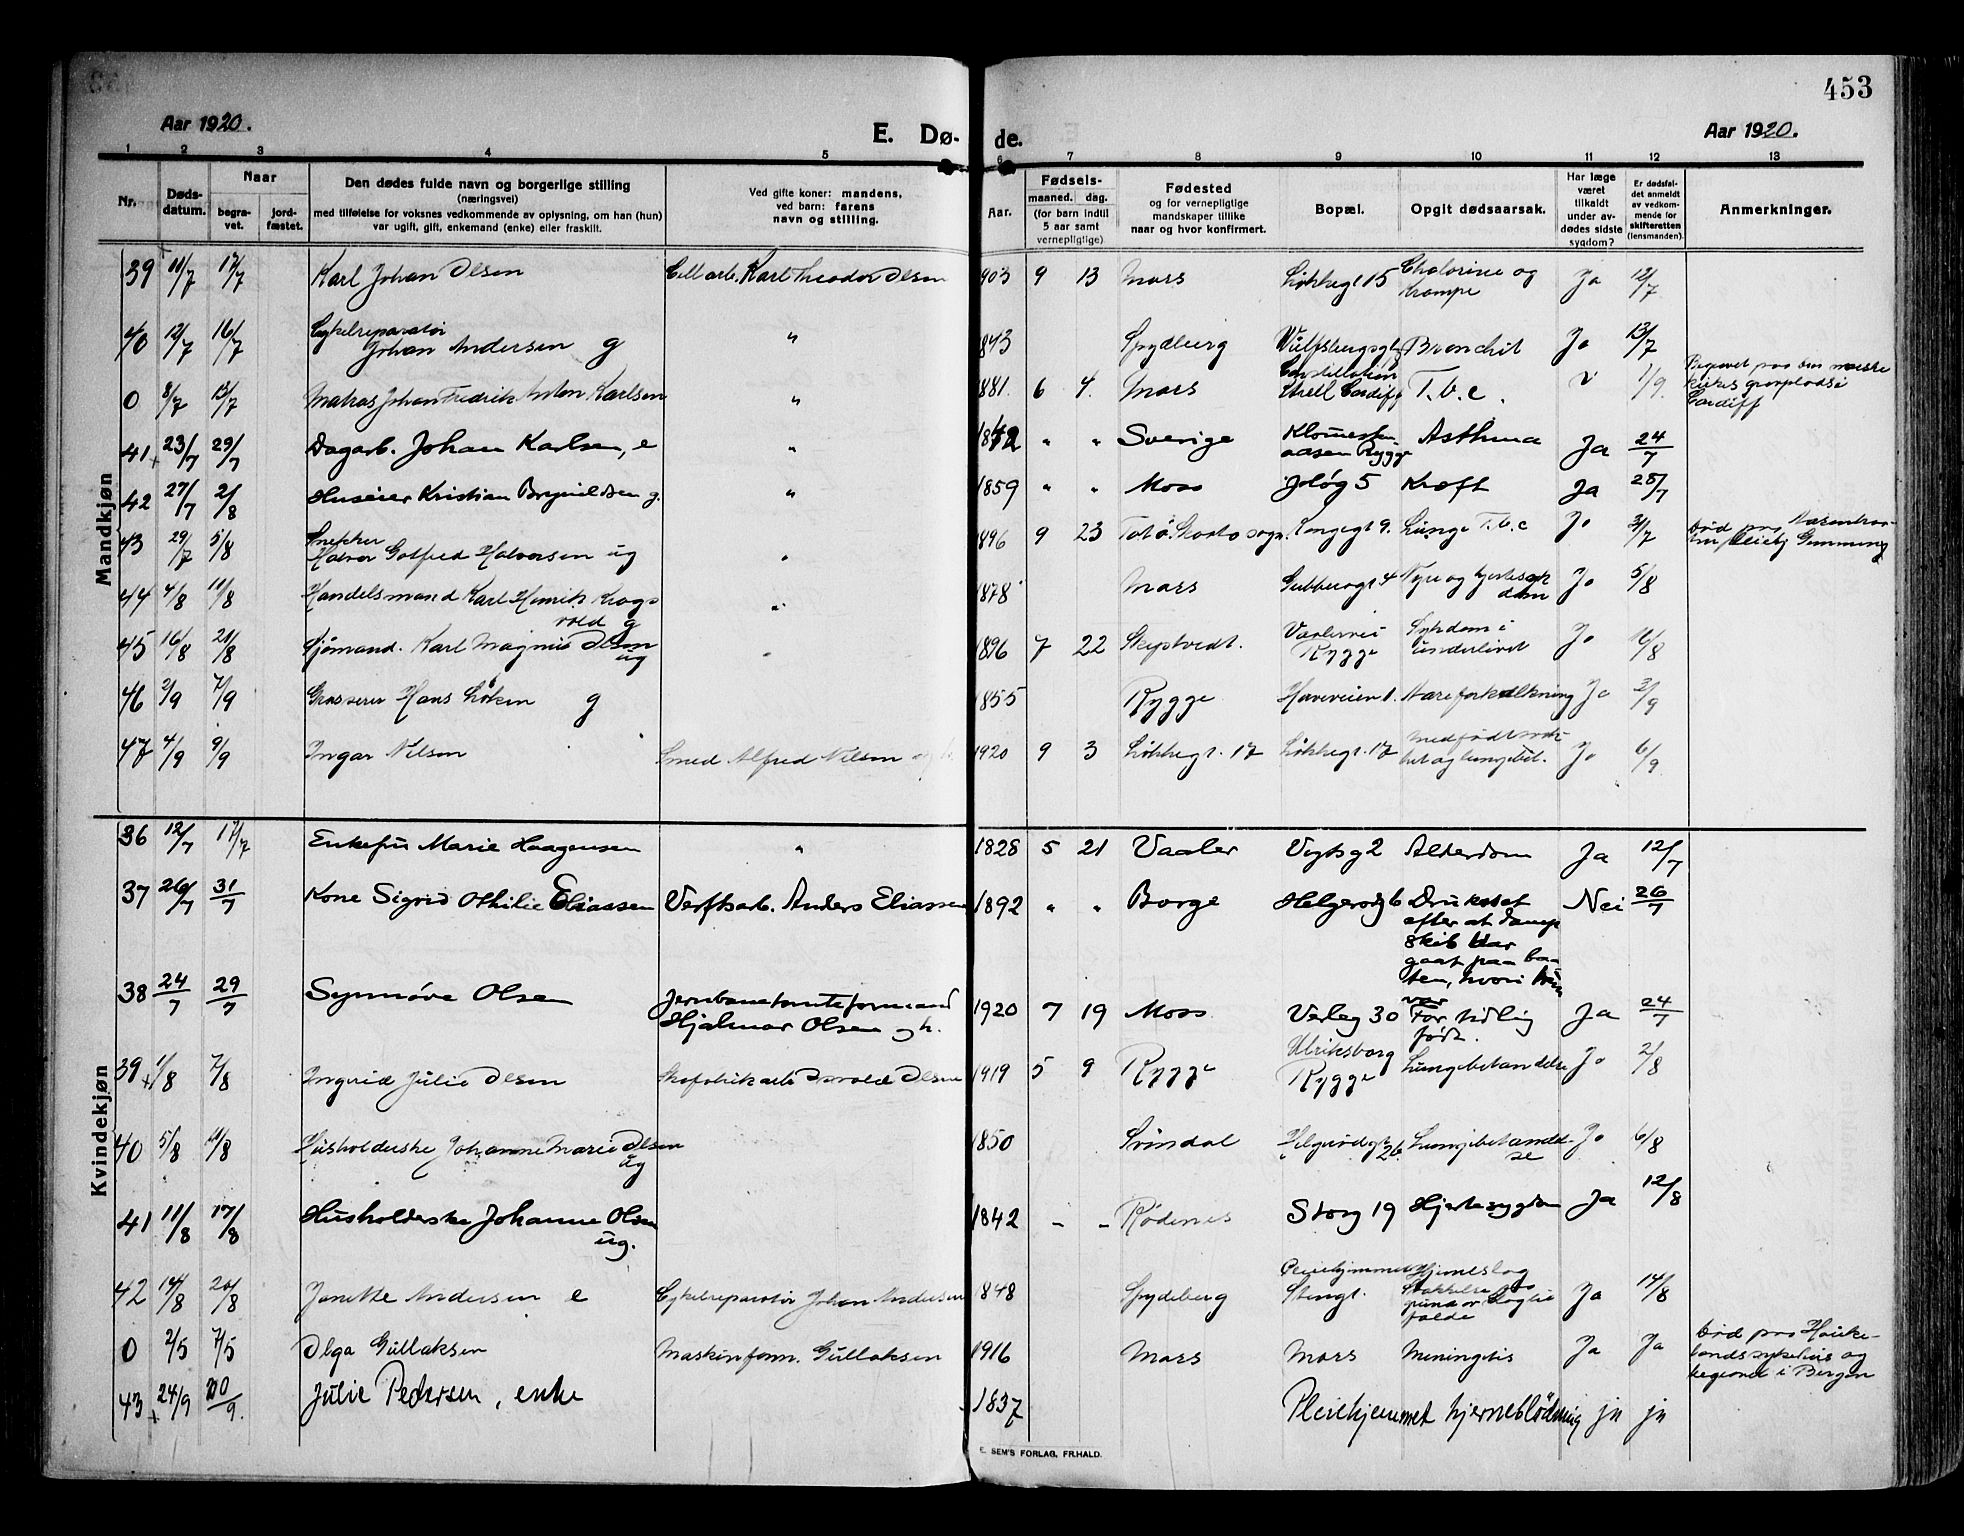 453
Aar 1920.
E. Dø- de.
Aar 1920.
1 2 3 4 5 6 7 8 9 10 11 12 13
Nr.
Døds-
datum.
Naar
begra-
vet.
jord-
fæstet.
Den dødes fulde navn og borgerlige stilling
(næringsvei)
med tilføielse for voksnes vedkommende av oplysning, om han (hun)
var ugift, gift, enkemand (enke) eller fraskilt.
Ved gifte koner: mandens,
ved barn: farens
navn og stilling.
Aar.
Fødsels-
maaned. dag.
(for barn indtil
5 aar samt
vernepligtige)
Fødested
og for vernepligtige
mandskaper tillike
naar og hvor konfirmert.
Bopæl.
Opgit dødsaarsak.
Har læge
været
tilkaldt
under av-
dødes sidste
sygdom?
Er dødsfal-
det anmeldt
av vedkom-
mende for
skifteretten
(lensmanden).
Anmerkninger.
Mandkjøn
39 11/7 17/7 Karl Johan Olsen Cell arb. Karl Theodor Olsen 1903 9 13 Moss Løkkegt 15 Cholorine og
Krampe Ja 12/7
40 12/7 16/7 Cykelreparatør
Johan Andersen g " 1843 Spydberg Wulfsbergsgt. Bronchit Ja 13/7
0 8/7 13/7 Matros Johan Fredrik Anton Karlsen " 1881. 6 4. Moss Cardiff T.b.c. 1/9.
Cardiff
41 23/7 29/7 Dagarb. Johan Karlsen, e " " " Sverige
aasen Rygge Asthma Ja 24/7
42 27/7 2/8 Huseier Kristian Brynildsen g. " 1859 " " Moss Joløg 5 Kræft Ja 28/7
43 29/7 5/8 Snekker
Halvor Gotfred Halvorsen ug " 1896 9 23 Kongegt 9. Lunge T.b.c Ja død paa
44 4/8 11/8 Handelsmand Karl Henrik Krogs
vold g " 1878 Moss Gubberogt 4 Nyre og hjertesyk
dom Ja 5/8
45 16/8 21/8 Sjømand. Karl Magnus Olsen
ug " 1896 7 22 Skiptvedt. Varlevei
Rygge Sykdom i
underlivet Ja
46 2/9 7/9 Grosserer Hans Løken g 1855 Rygge Haveveien 1. Aareforkalkning Ja 3/9
47 4/9 9/9 Ingar Nilsen Smed Alfred Nilsen 1920 9 3 Løkkegt. 17 Løkkegt. 17 Ja 6/9
Kvindekjøn
36 12/7 17/7 Enkefru Marie Haagensen " 1828 5 21 Vaaler Vogtsg 2 Alderdom Ja 12/7
37 26/7 31/7 Kone Sigrid Othilie Eliassen Verftsarb. Anders Eliassen 1892 " " Borge Helgerødg 6 Druknet
efter at damp
skib har
gaat paa baa
ten, hvori hun
var Nei 26/7
38 24/7 29/7 Synnøve Olsen Jernbanetomteformand
Hjalmar Olsen og h. 1920 7 19 Moss Verleg 30 For tidlig
født. Ja 24/7
39 1/8 7/8 Ingrid Julie Olsen Skofabrikarb Olsen 1919 5 9 Rygge Ulriksborg
Rygge Lungebetændelse Ja 2/8
40 5/8 11/8 Husholderske Johanne Marie Olsen
ug 1850 Svindal Helgerødgt
26. Lungebetændel-
se Ja 6/8
41 11/8 17/8 Husholderske Johanne Olsen
ug. 1842 - - Rødenes Storg 19 Hjertesygdom Ja 12/8
42 14/8 20/8 Janette Andersen e Cykelreparatør Johan Andersen 1848 Spydeberg Pleiehjemmet
Stengt. Ja 14/8
0 2/5 7/5 Olga Gullaksen Maskinform. Gullaksen 1916 Moss Moss Meningitis Ja Ja Død paa Hauke-
landssykehus og
begravet i Bergen
43 24/9 /9. Julie Pedersen, enke 1837 Pleiehjemmet hjerneblödning ja ja
E. SEM'S FORLAG, FR.HALD.